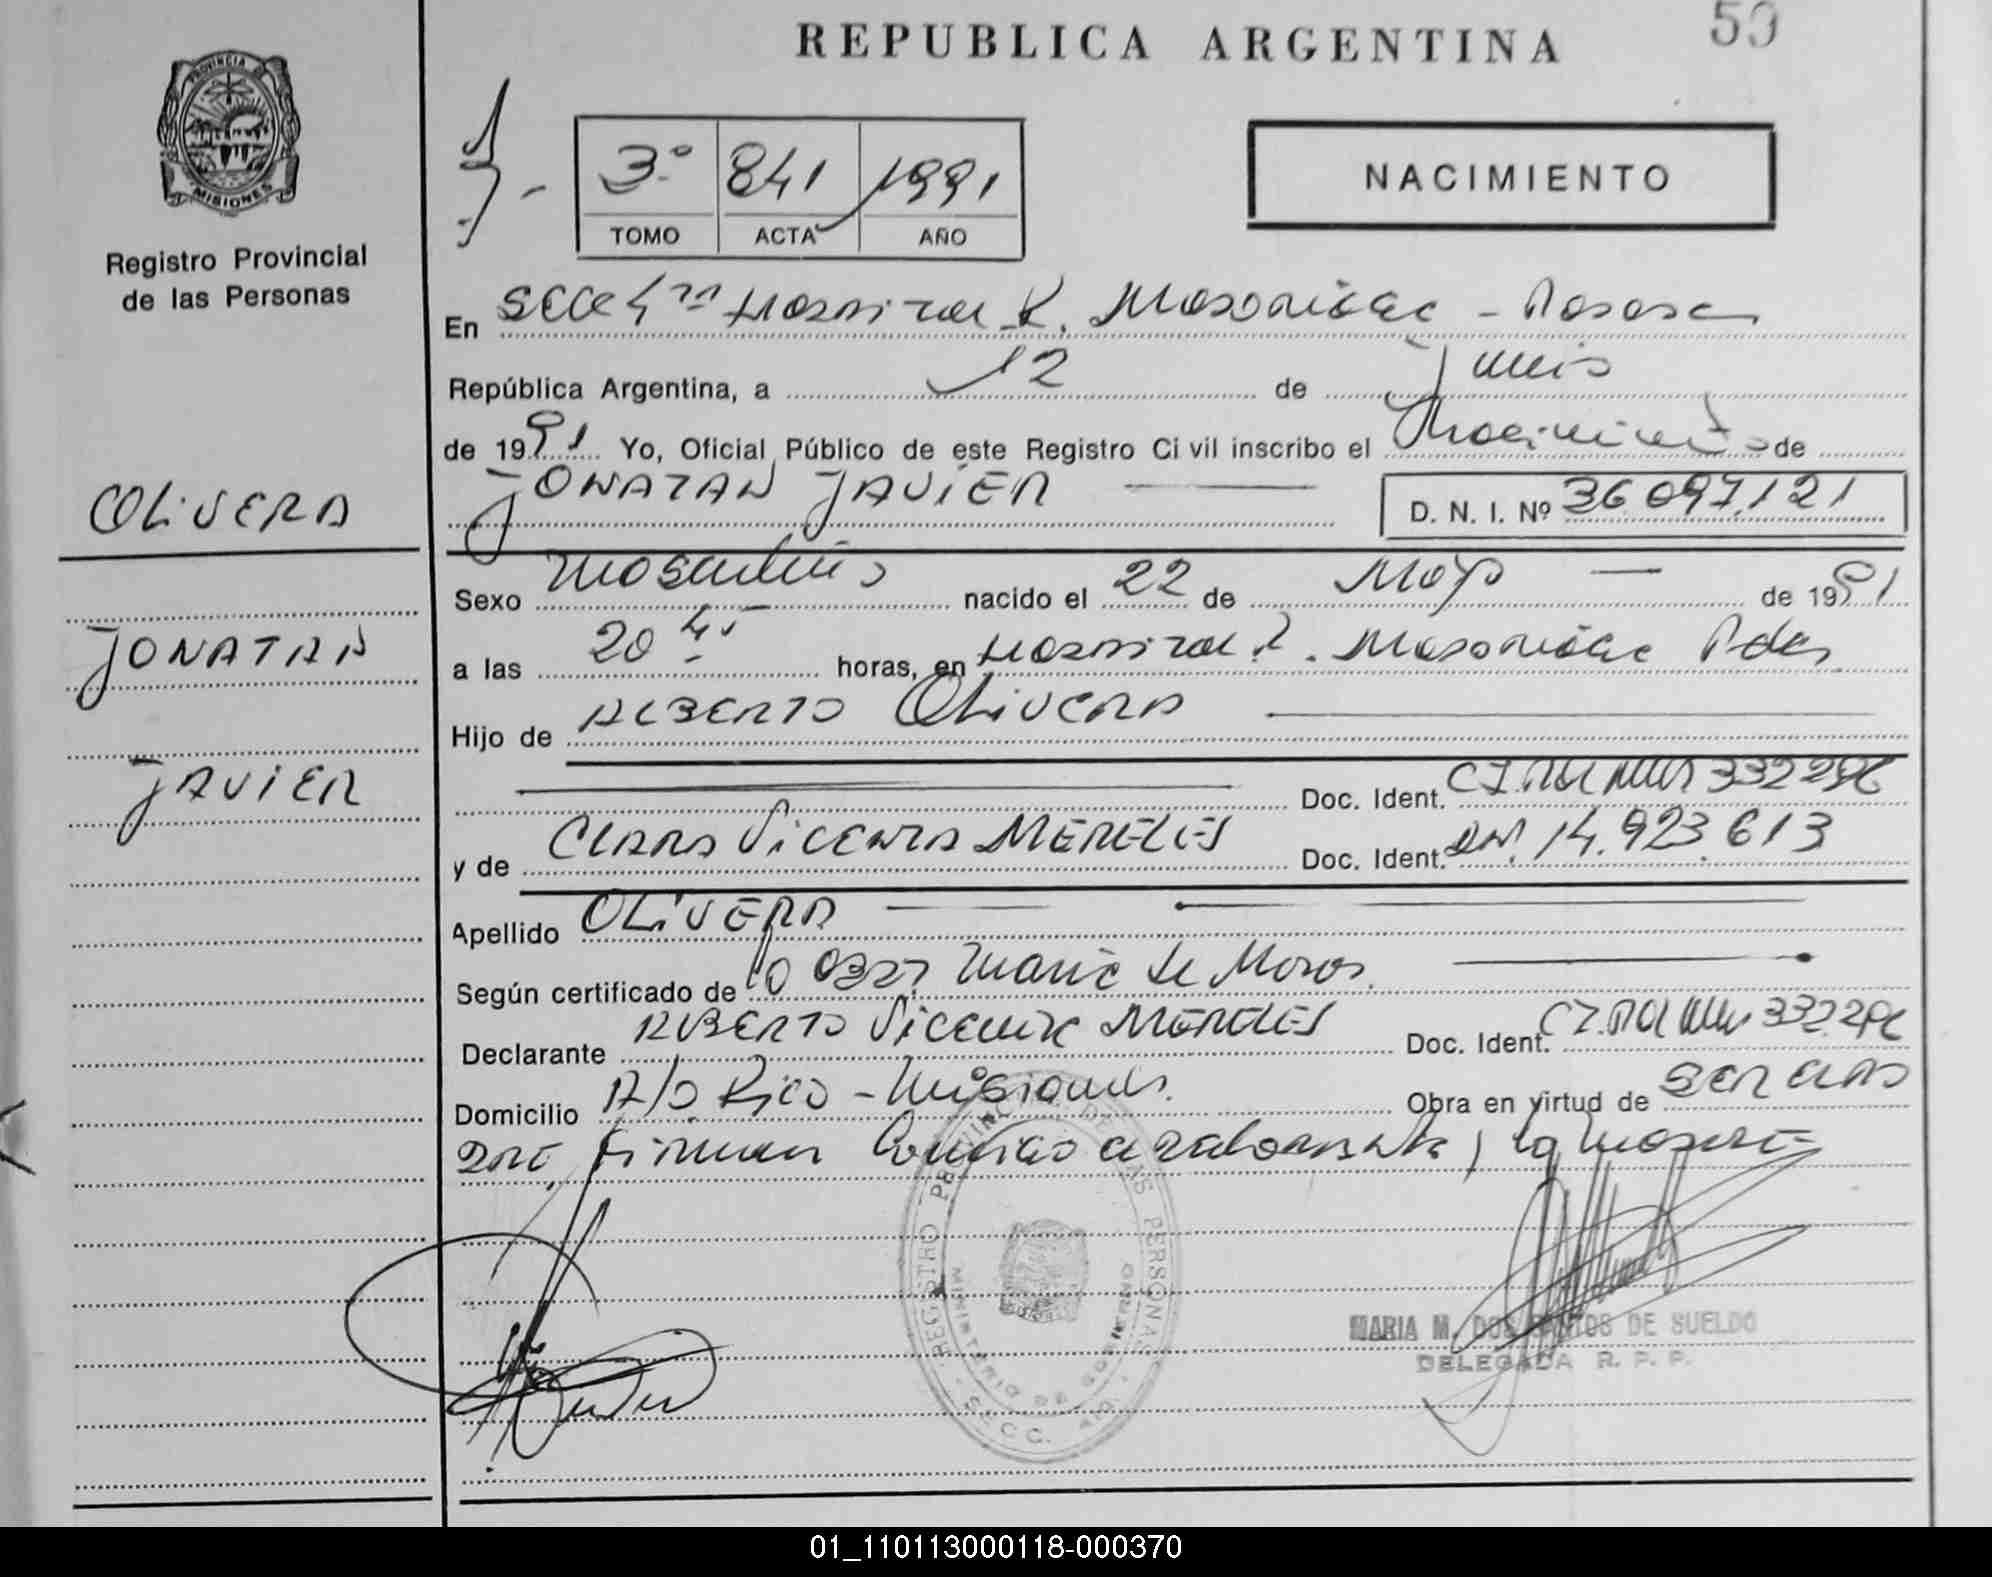 REPUBLICA ARGENTINA
59
PROVINCIA DE
MISIONES
Registro Provincial
de las Personas
3º 841 1991
TOMO ACTA AÑO
NACIMIENTO
En Secc 4ta Hospital R. Madariaga - Posadas
República Argentina, a 12 de Junio
de 1991 Yo, Oficial Público de este Registro Civil inscribo el Nacimiento de
JONATAN JAVIER
D. N. I. Nº 36.097.121
OLIVERA
JONATAN
JAVIER
Sexo Masculino nacido el 22 de Mayo de 1991
a las 20 45 horas, en Hospital R. Madariaga Pdas
Hijo de ALBERTO OLIVERA
Doc. Ident. CI. Pol Mnes 332296
y de CLARA VICENTA MERELES Doc. Ident. DNI. 14.923.613
Apellido OLIVERA
Según certificado de María de
Declarante ALBERTO MERELES Doc. Ident. CI. Pol Mnes 332.296
Domicilio Pto Rico - Misiones Obra en virtud de SER EL
Firman
REGISTRO PROVINCIAL DE LAS PERSONAS
MINISTERIO DE GOBIERNO
SECC.
MARIA M. DOS SANTOS DE SUELDO
DELEGADA R. P. P.
01_110113000118-000370